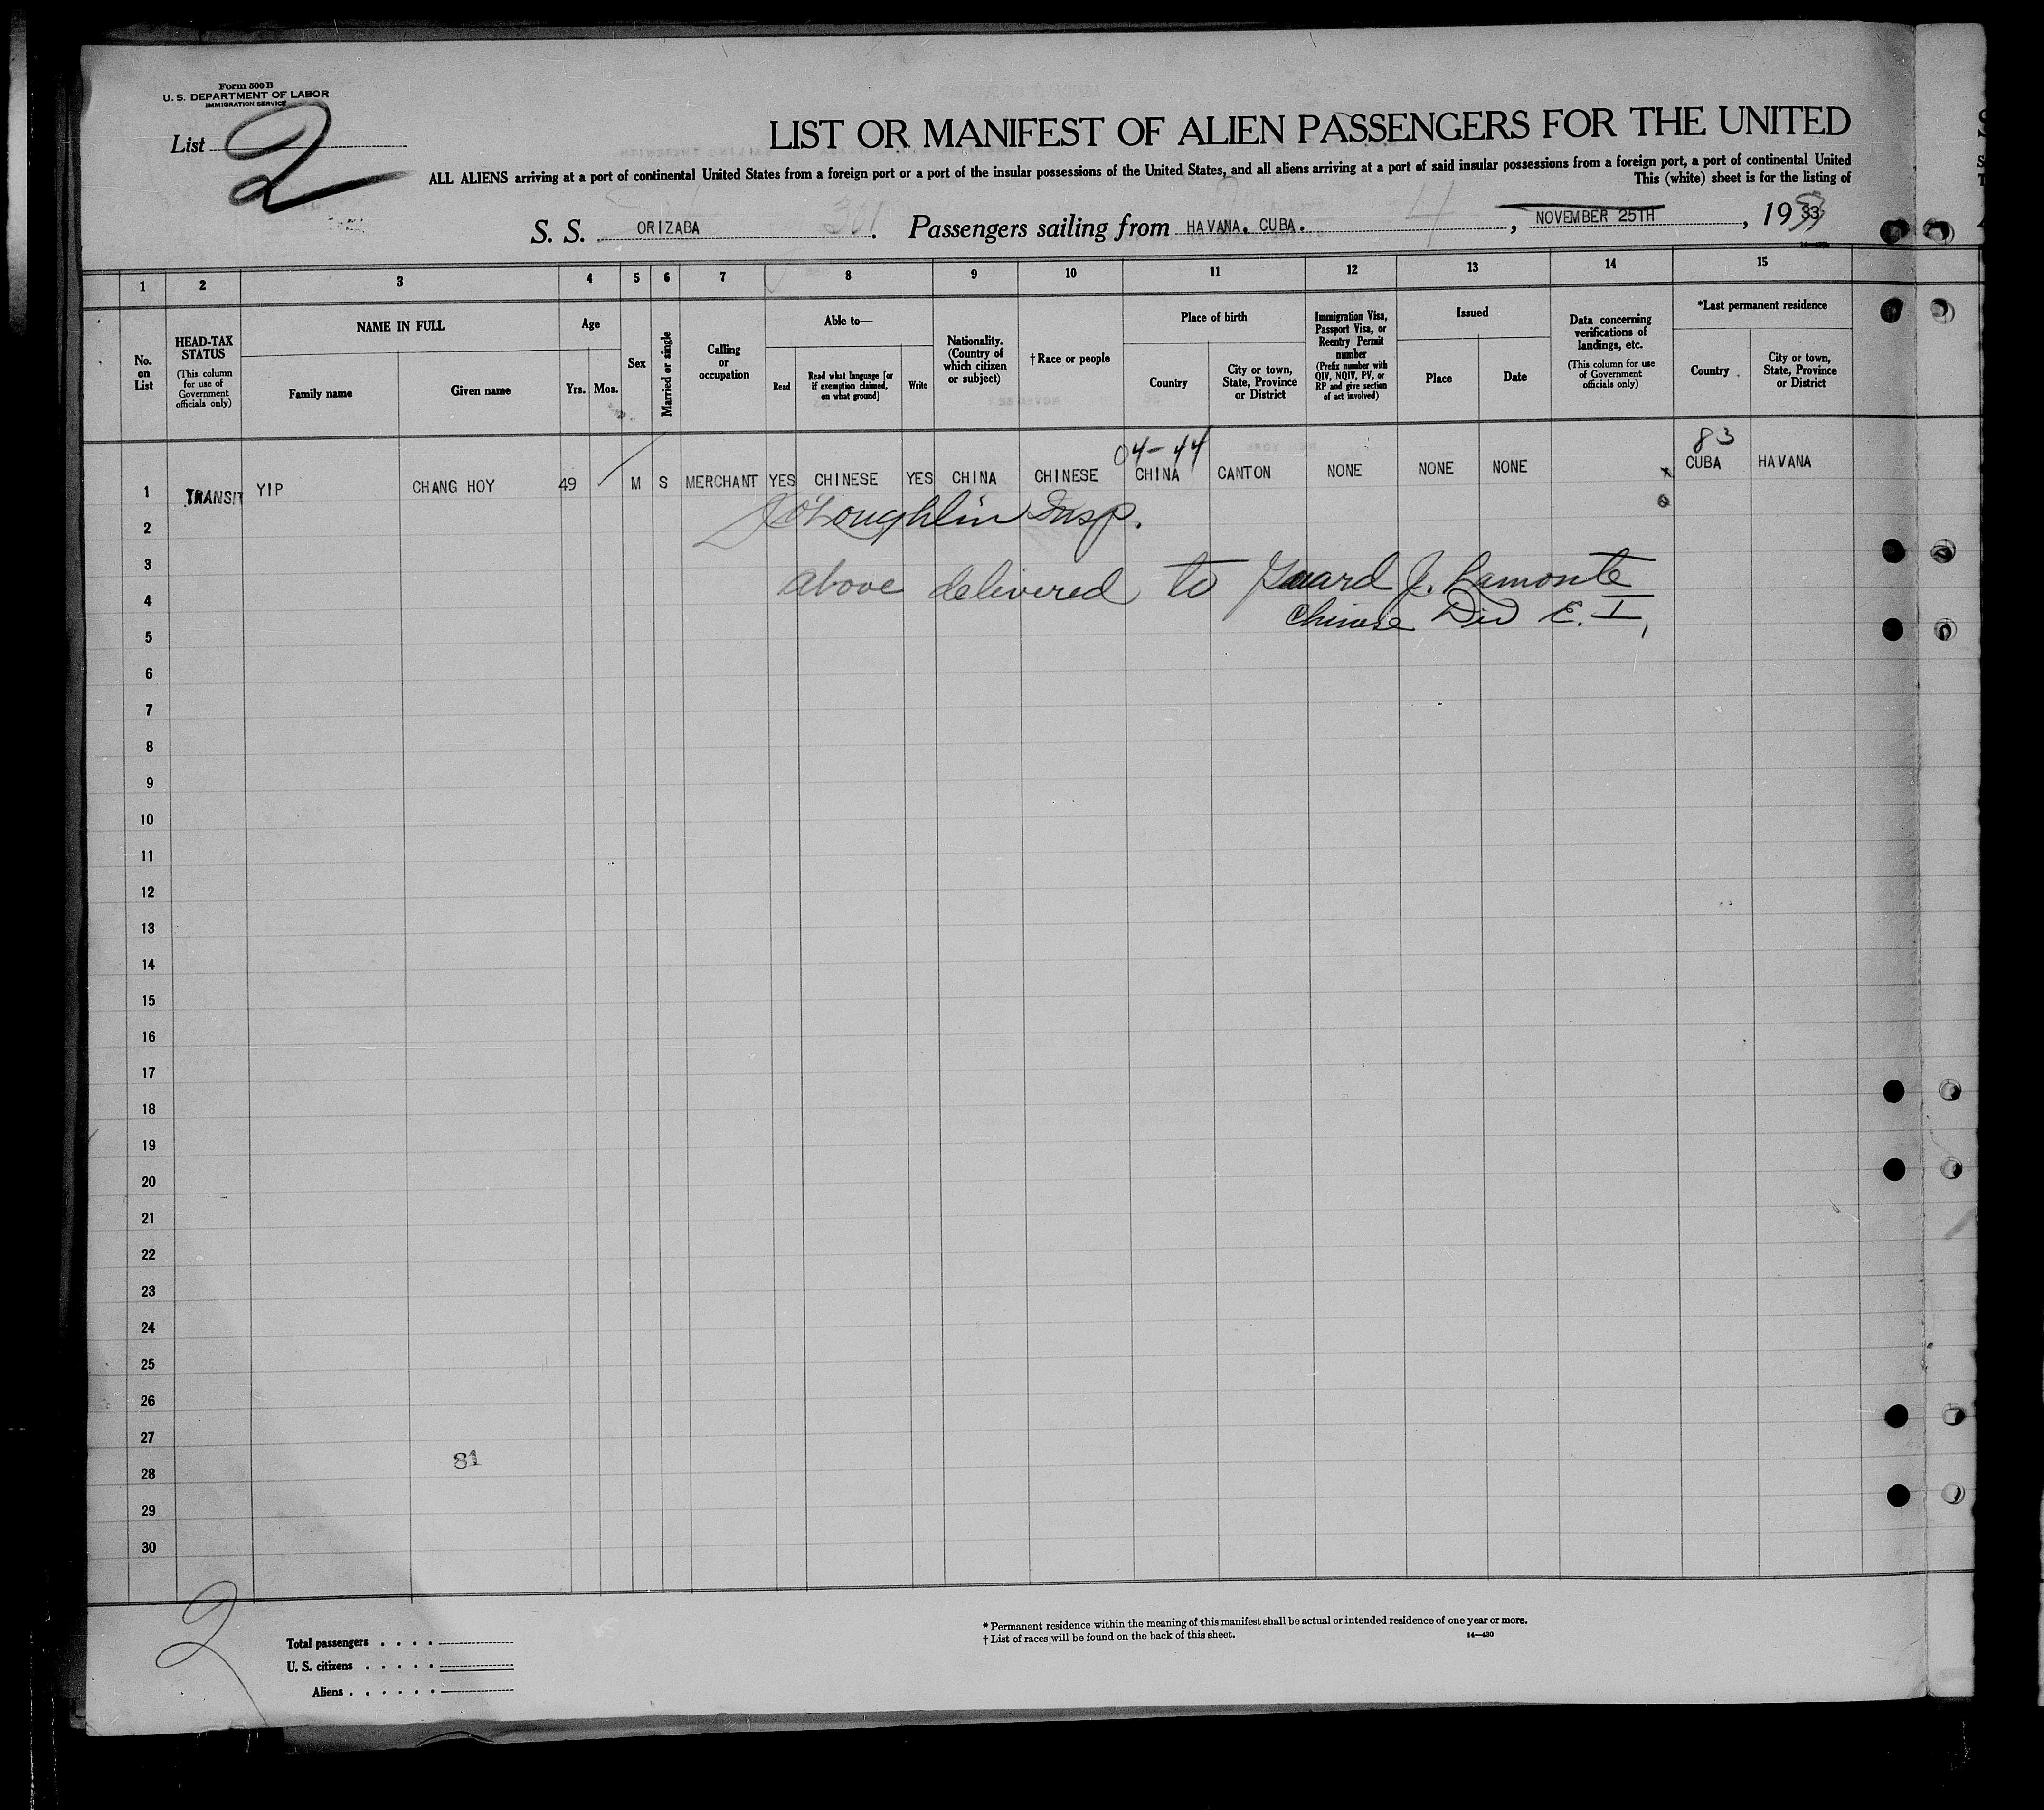 Form 500 B
U. S. DEPARTMENT OF LABOR
IMMIGRATION SERVICE
List 2
LIST OR MANIFEST OF ALIEN PASSENGERS FOR THE UNITED
ALL ALIENS arriving at a port of continental United States from a foreign port or a port of the insular possessions of the United States, and all aliens arriving at a port of said insular possessions from a foreign port, a port of continental United
This (white) sheet is for the listing of
S. S. ORIZABA 301. Passengers sailing from HAVANA. CUBA. 4, NOVEMBER 25TH, 1933
1 2 3 4 5 6 7 8 9 10 11 12 13 14 15
No. on List
HEAD-TAX STATUS (This column for use of Government officials only)
NAME IN FULL
Family name
Given name
Age
Yrs. Mos.
Sex
Married or single
Calling or occupation
Able to—
Read
Read what language [or if exemption claimed, on what ground]
Write
Nationality. (Country of which citizen or subject)
†Race or people
Place of birth
Country
City or town, State, Province or District
Immigration Visa, Passport Visa, or Reentry Permit number (Prefix number with QIV, NQIV, PV, or RP and give section of act involved)
Issued
Place
Date
Data concerning verifications of landings, etc. (This column for use of Government officials only)
*Last permanent residence
Country
City or town, State, Province or District
04-44 83
1 TRANSIT YIP CHANG HOY 49 M S MERCHANT YES CHINESE YES CHINA CHINESE CHINA CANTON NONE NONE NONE x CUBA HAVANA
2 O'Loughlin Insp.
3
4 above delivered to Guard J. Lamonte
5 Chinese Div E. I.
6
7
8
9
10
11
12
13
14
15
16
17
18
19
20
21
22
23
24
25
26
27
81
28
29
30
2
Total passengers
U. S. citizens
Aliens
* Permanent residence within the meaning of this manifest shall be actual or intended residence of one year or more.
† List of races will be found on the back of this sheet.
14—430